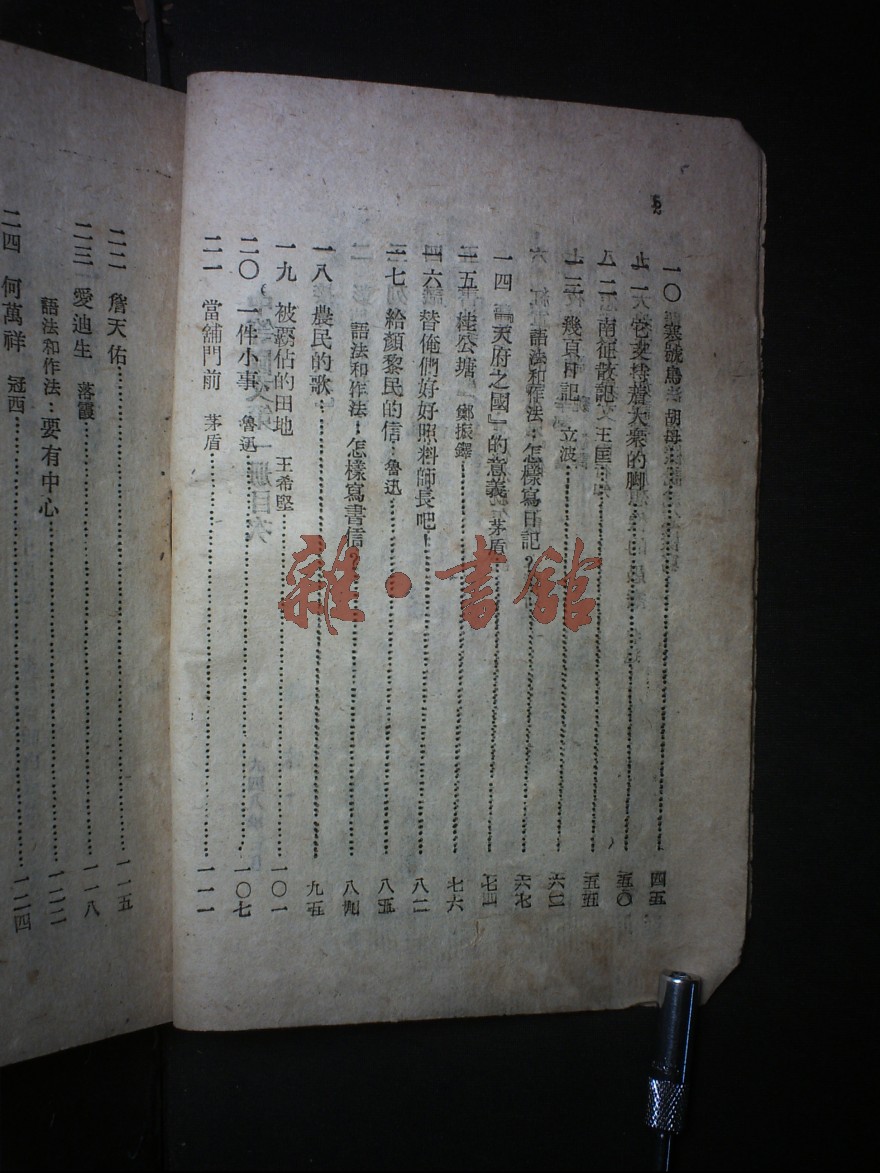 2
一〇 寒號鳥 胡母……四五
一一 它支持着大衆的脚……五〇
一二 南征散記 王匡……五五
一三 幾頁日記 立波……六二
語法和作法：怎樣寫日記？……六七
一四 『天府之國』的意義 茅盾……七四
一五 桂公塘 鄭振鐸……七六
一六 替俺們好好照料師長吧！……八二
一七 給顏黎民的信 魯迅……八五
語法和作法：怎樣寫書信？……八九
一八 農民的歌……九五
一九 被覇佔的田地 王希堅……一〇一
二〇 一件小事 魯迅……一〇七
二一 當舖門前 茅盾……一一一
二二 詹天佑……一一五
二三 愛迪生 落霞……一一八
語法和作法：要有中心……一二二
二四 何萬祥 冠西……一二四
雜·書館